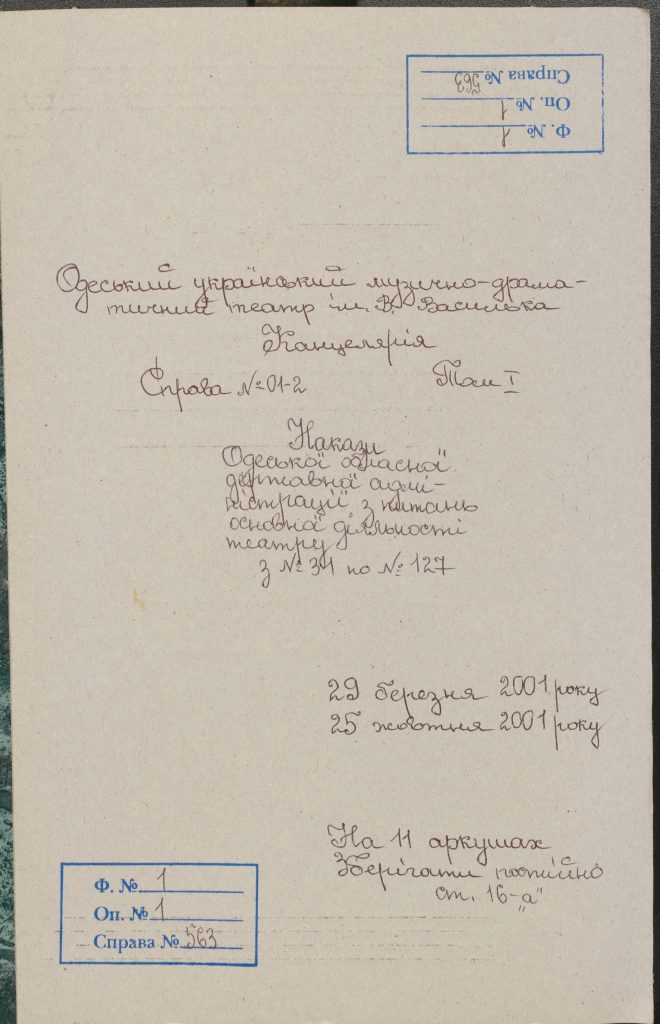 Ф. № 1
Оп. № 1
Справа № 563
Одеський український музично-драма-
тичний театр ім. В. Василька
Канцелярія
Справа № 01-2 Том I
Накази
Одеської обласної
державної адмі-
ністрації з питань
основної діяльності
театру
з № 31 по № 127
29 березня 2001 року
25 жовтня 2001 року
На 11 аркушах
Зберігати постійно
ст. 16-"а"
Ф. № 1
Оп. № 1
Справа № 563